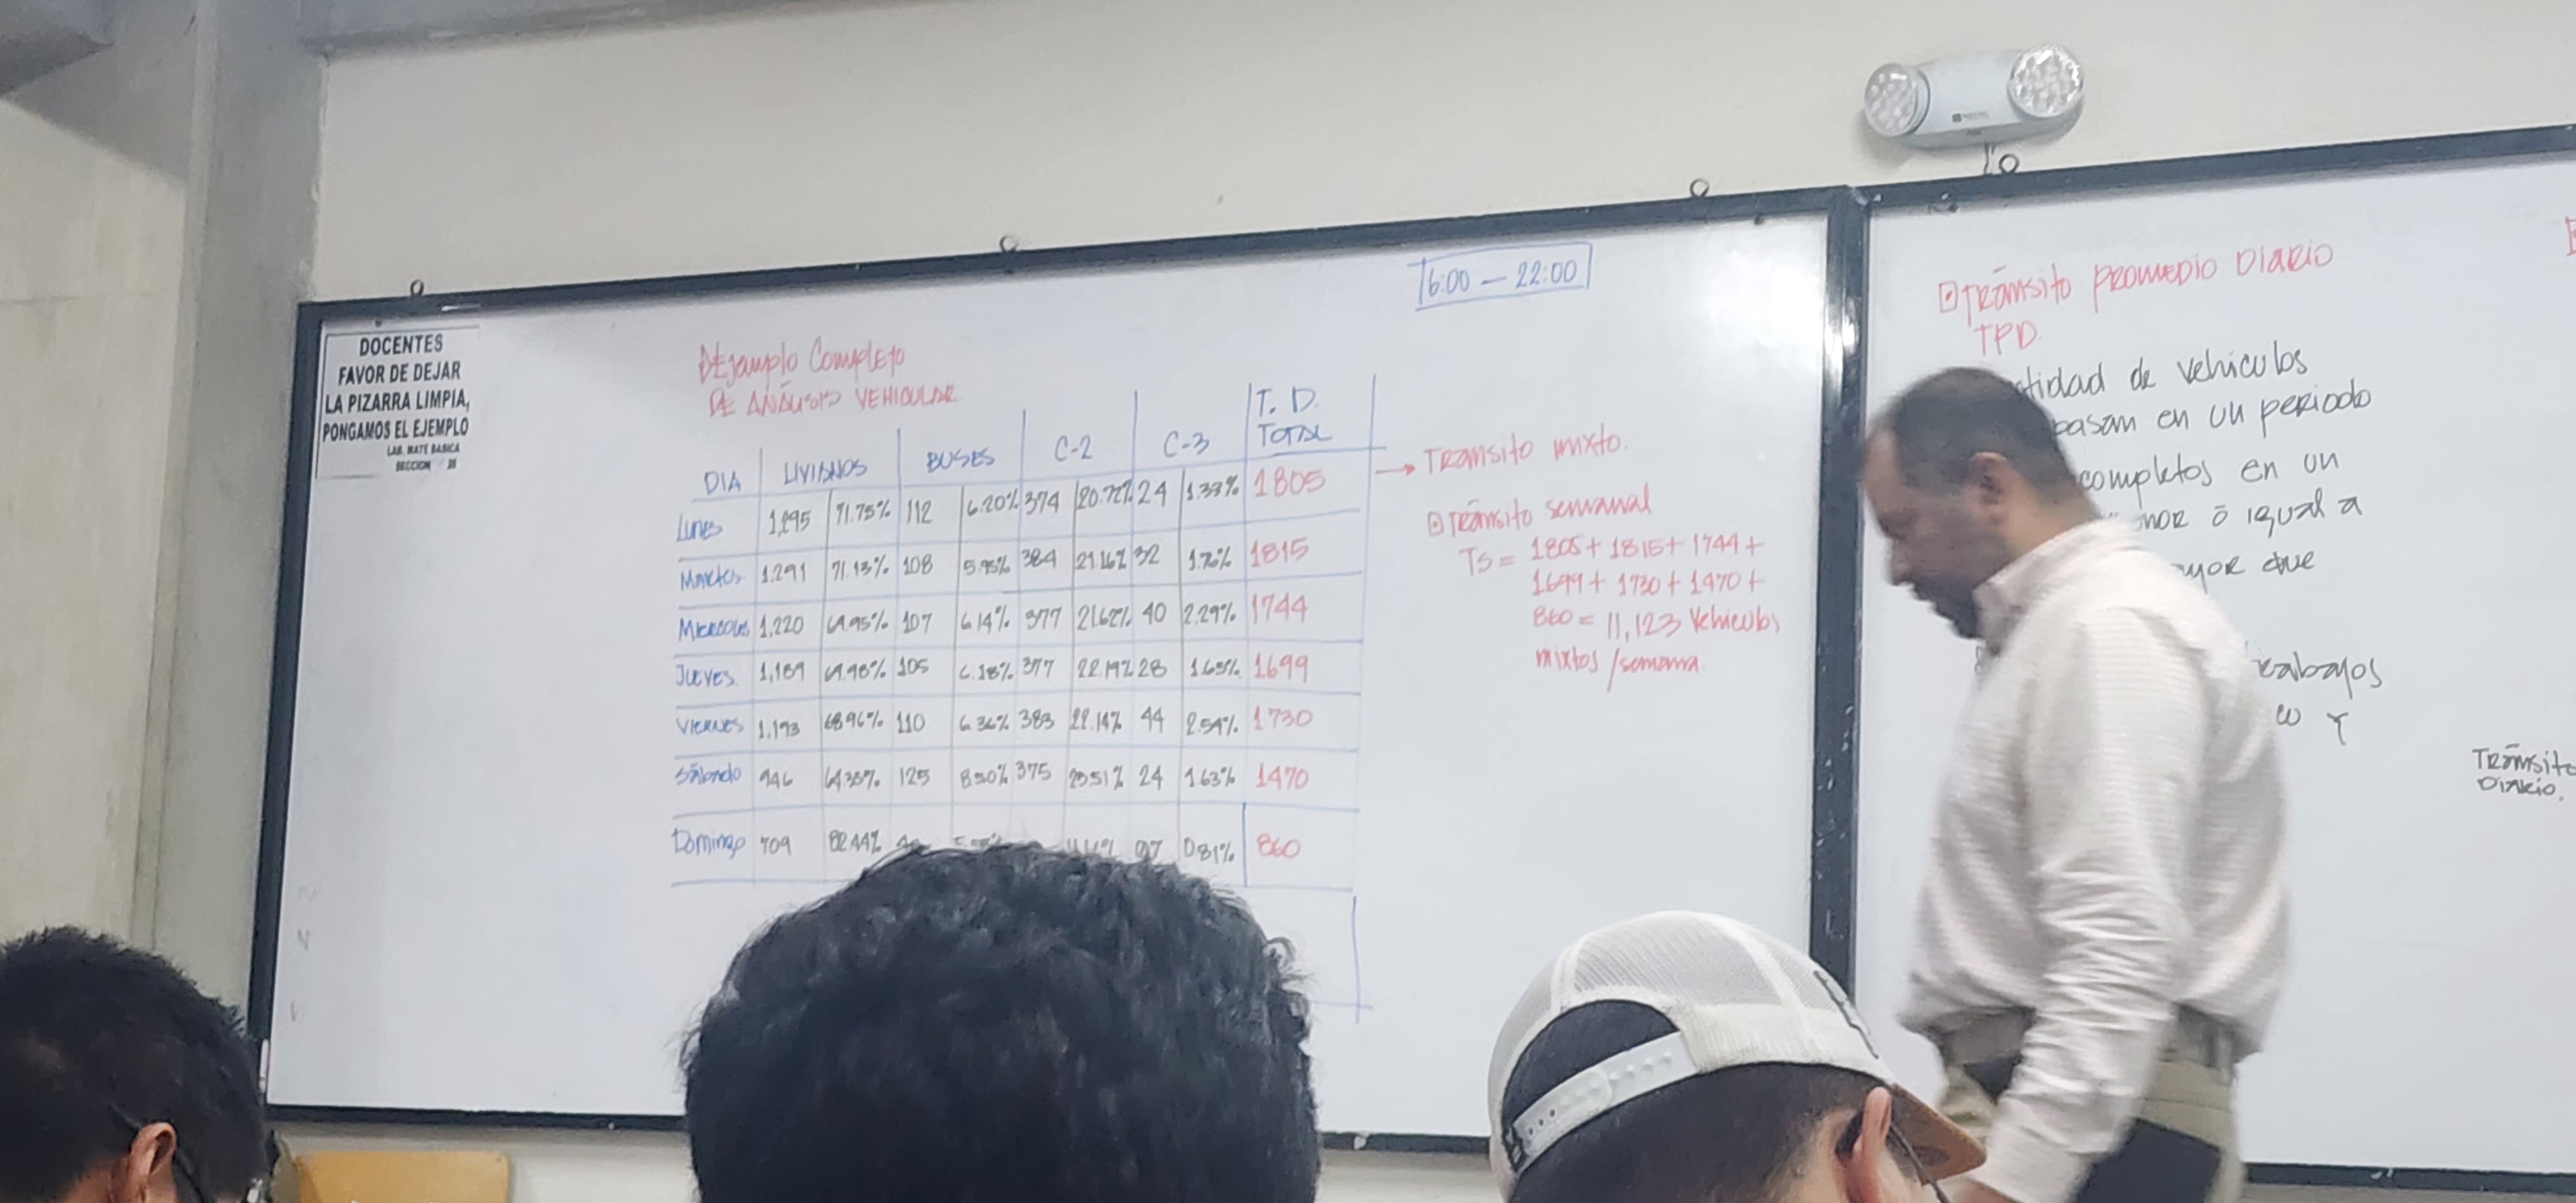 DOCENTES
FAVOR DE DEJAR
LA PIZARRA LIMPIA,
PONGAMOS EL EJEMPLO
LAB. MATE BASICA
SECCION
Ejemplo Completo
DE ANÁLISIS VEHICULAR
6:00 — 22:00
DIA LIVIANOS BUSES C-2 C-3 T. D. TOTAL
Lunes 1,295 71.75% 112 6.20% 374 20.72% 24 1.33% 1805
Martes 1,291 71.13% 108 5.95% 384 21.16% 32 1.76% 1815
Miercoles 1,220 69.95% 107 6.14% 377 21.62% 40 2.29% 1744
Jueves 1,189 69.98% 105 6.18% 377 22.19% 28 1.65% 1699
Viernes 1,193 68.96% 110 6.36% 383 22.14% 44 2.54% 1730
Sábado 946 64.35% 125 8.50% 375 25.51% 24 1.63% 1470
Domingo 709 82.44% 07 0.81% 860
→ Transito mixto.
Tránsito semanal
TS = 1805 + 1815 + 1744 +
1699 + 1730 + 1470 +
860 = 11,123 Vehiculos
mixtos / semana
Tránsito PROMEDIO DIARIO
TPD.
de vehiculos
en un periodo
completos en un
ó igual a
que
Y
Tránsito
Diario.